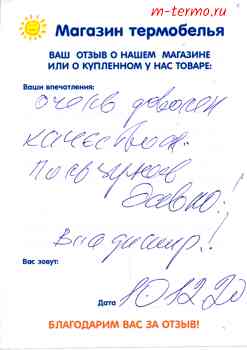 m-termo.ru
Магазин термобелья
ВАШ ОТЗЫВ О НАШЕМ МАГАЗИНЕ
ИЛИ О КУПЛЕННОМ У НАС ТОВАРЕ:
Ваши впечатления:
очень доволен
качеством.
давно!
Владимир!
Вас зовут:
Дата 10.12.20
БЛАГОДАРИМ ВАС ЗА ОТЗЫВ!